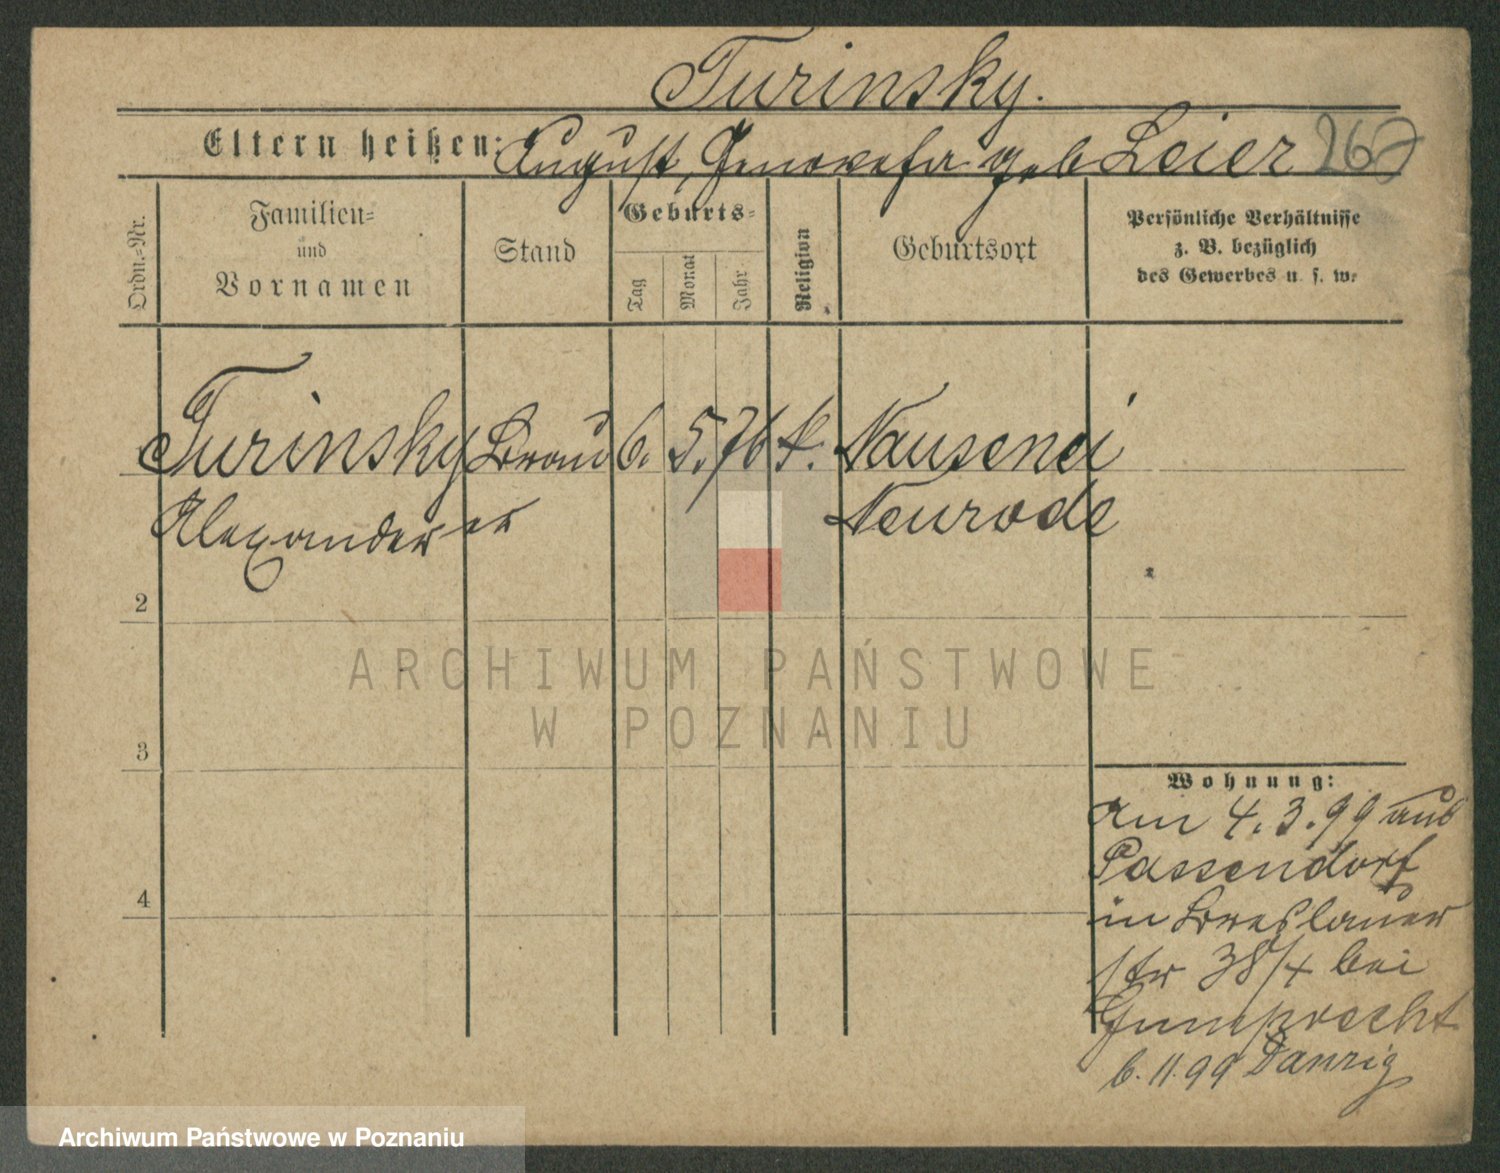 Turinsky.
Eltern heißen: August, Genovefa geb Leier 267
Ordn.-Nr.
Familien-
und
Vornamen
Stand
Geburts-
Tag
Monat
Jahr
Religion
Geburtsort
Persönliche Verhältnisse
z. B. bezüglich
des Gewerbes u. s. w.
Turinsky Brau 6. 5. 76 k. Nausenei
Alexander er Neurode
2
3
4
Wohnung:
am 4.3.99 aus
Passendorf
in Breslauer
str 38/4 bei
Gumprecht
6.11.99 Danzig
ARCHIWUM PAŃSTWOWE
W POZNANIU
Archiwum Państwowe w Poznaniu